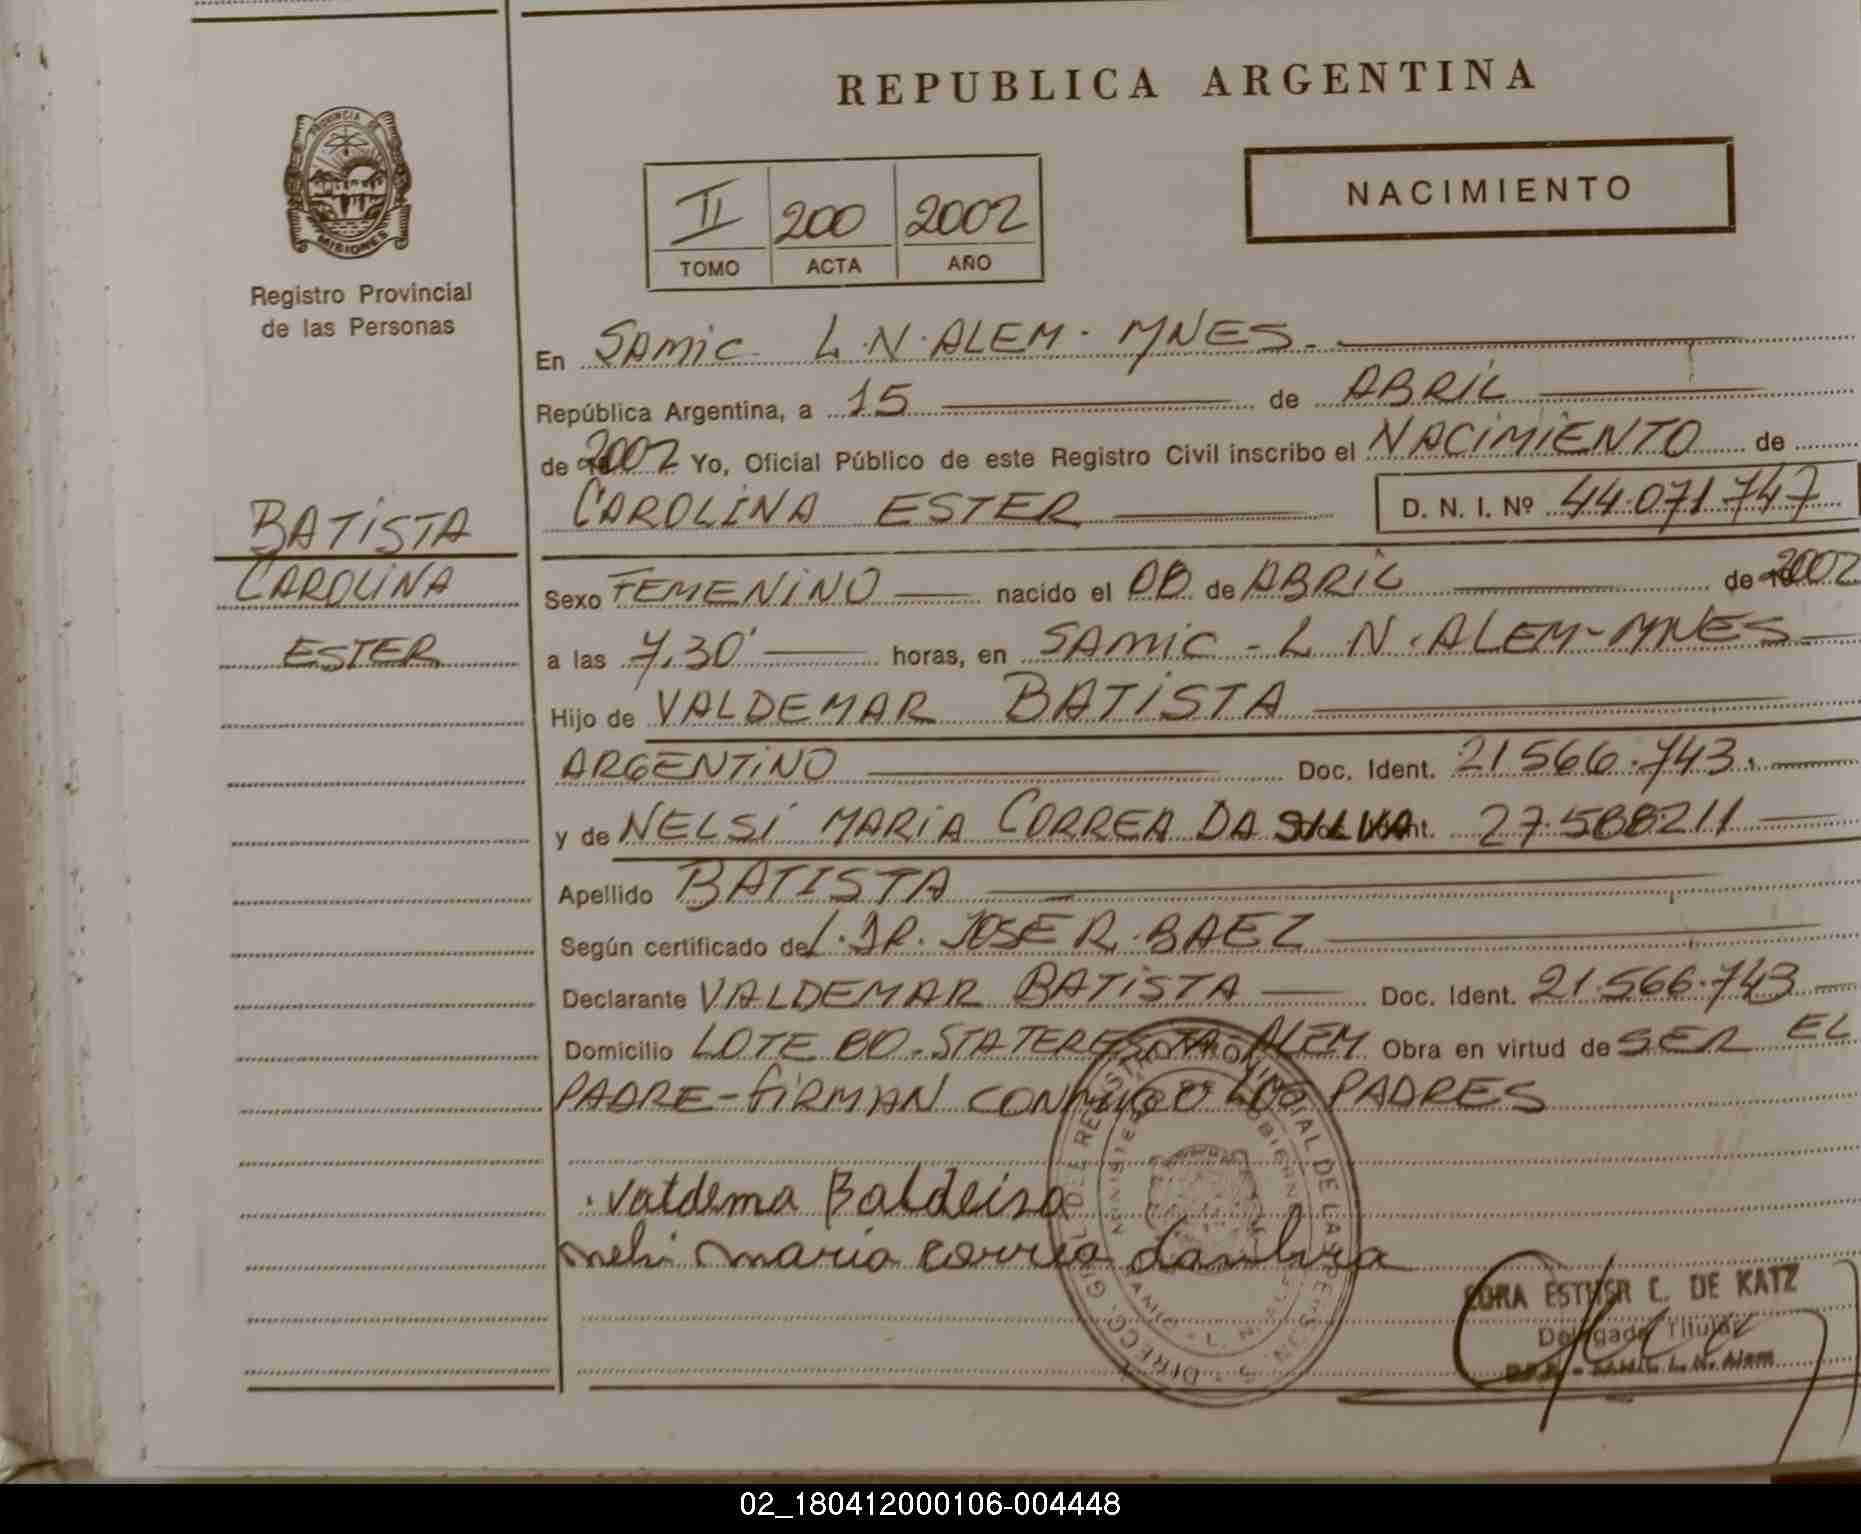 REPUBLICA ARGENTINA
PROVINCIA DE
MISIONES
Registro Provincial
de las Personas
II 200 2002
TOMO ACTA AÑO
NACIMIENTO
En SAMIC L.N.ALEM. MNES.
República Argentina, a 15 de ABRIL
de 2002 Yo, Oficial Público de este Registro Civil inscribo el NACIMIENTO de
CAROLINA ESTER D. N. I. Nº 44.071.747
BATISTA
CAROLINA
ESTER
Sexo FEMENINO nacido el 08 de ABRIL de 2002
a las 7.30' horas, en SAMIC - L N. ALEM-MNES
Hijo de VALDEMAR BATISTA
ARGENTINO Doc. Ident. 21566.743.
y de NELSI MARIA CORREA DA SILVA 27.588211
Apellido BATISTA
Según certificado del. DR. JOSE R. BAEZ
Declarante VALDEMAR BATISTA Doc. Ident. 21.566.743
Domicilio LOTE 80. STA TERESITA ALEM Obra en virtud de SER EL
PADRE - FIRMAN CONMIGO LOS PADRES
Valdema
maria correa
CORA ESTHER C. DE KATZ
Delegada Titular
L. N. Alem
02_180412000106-004448